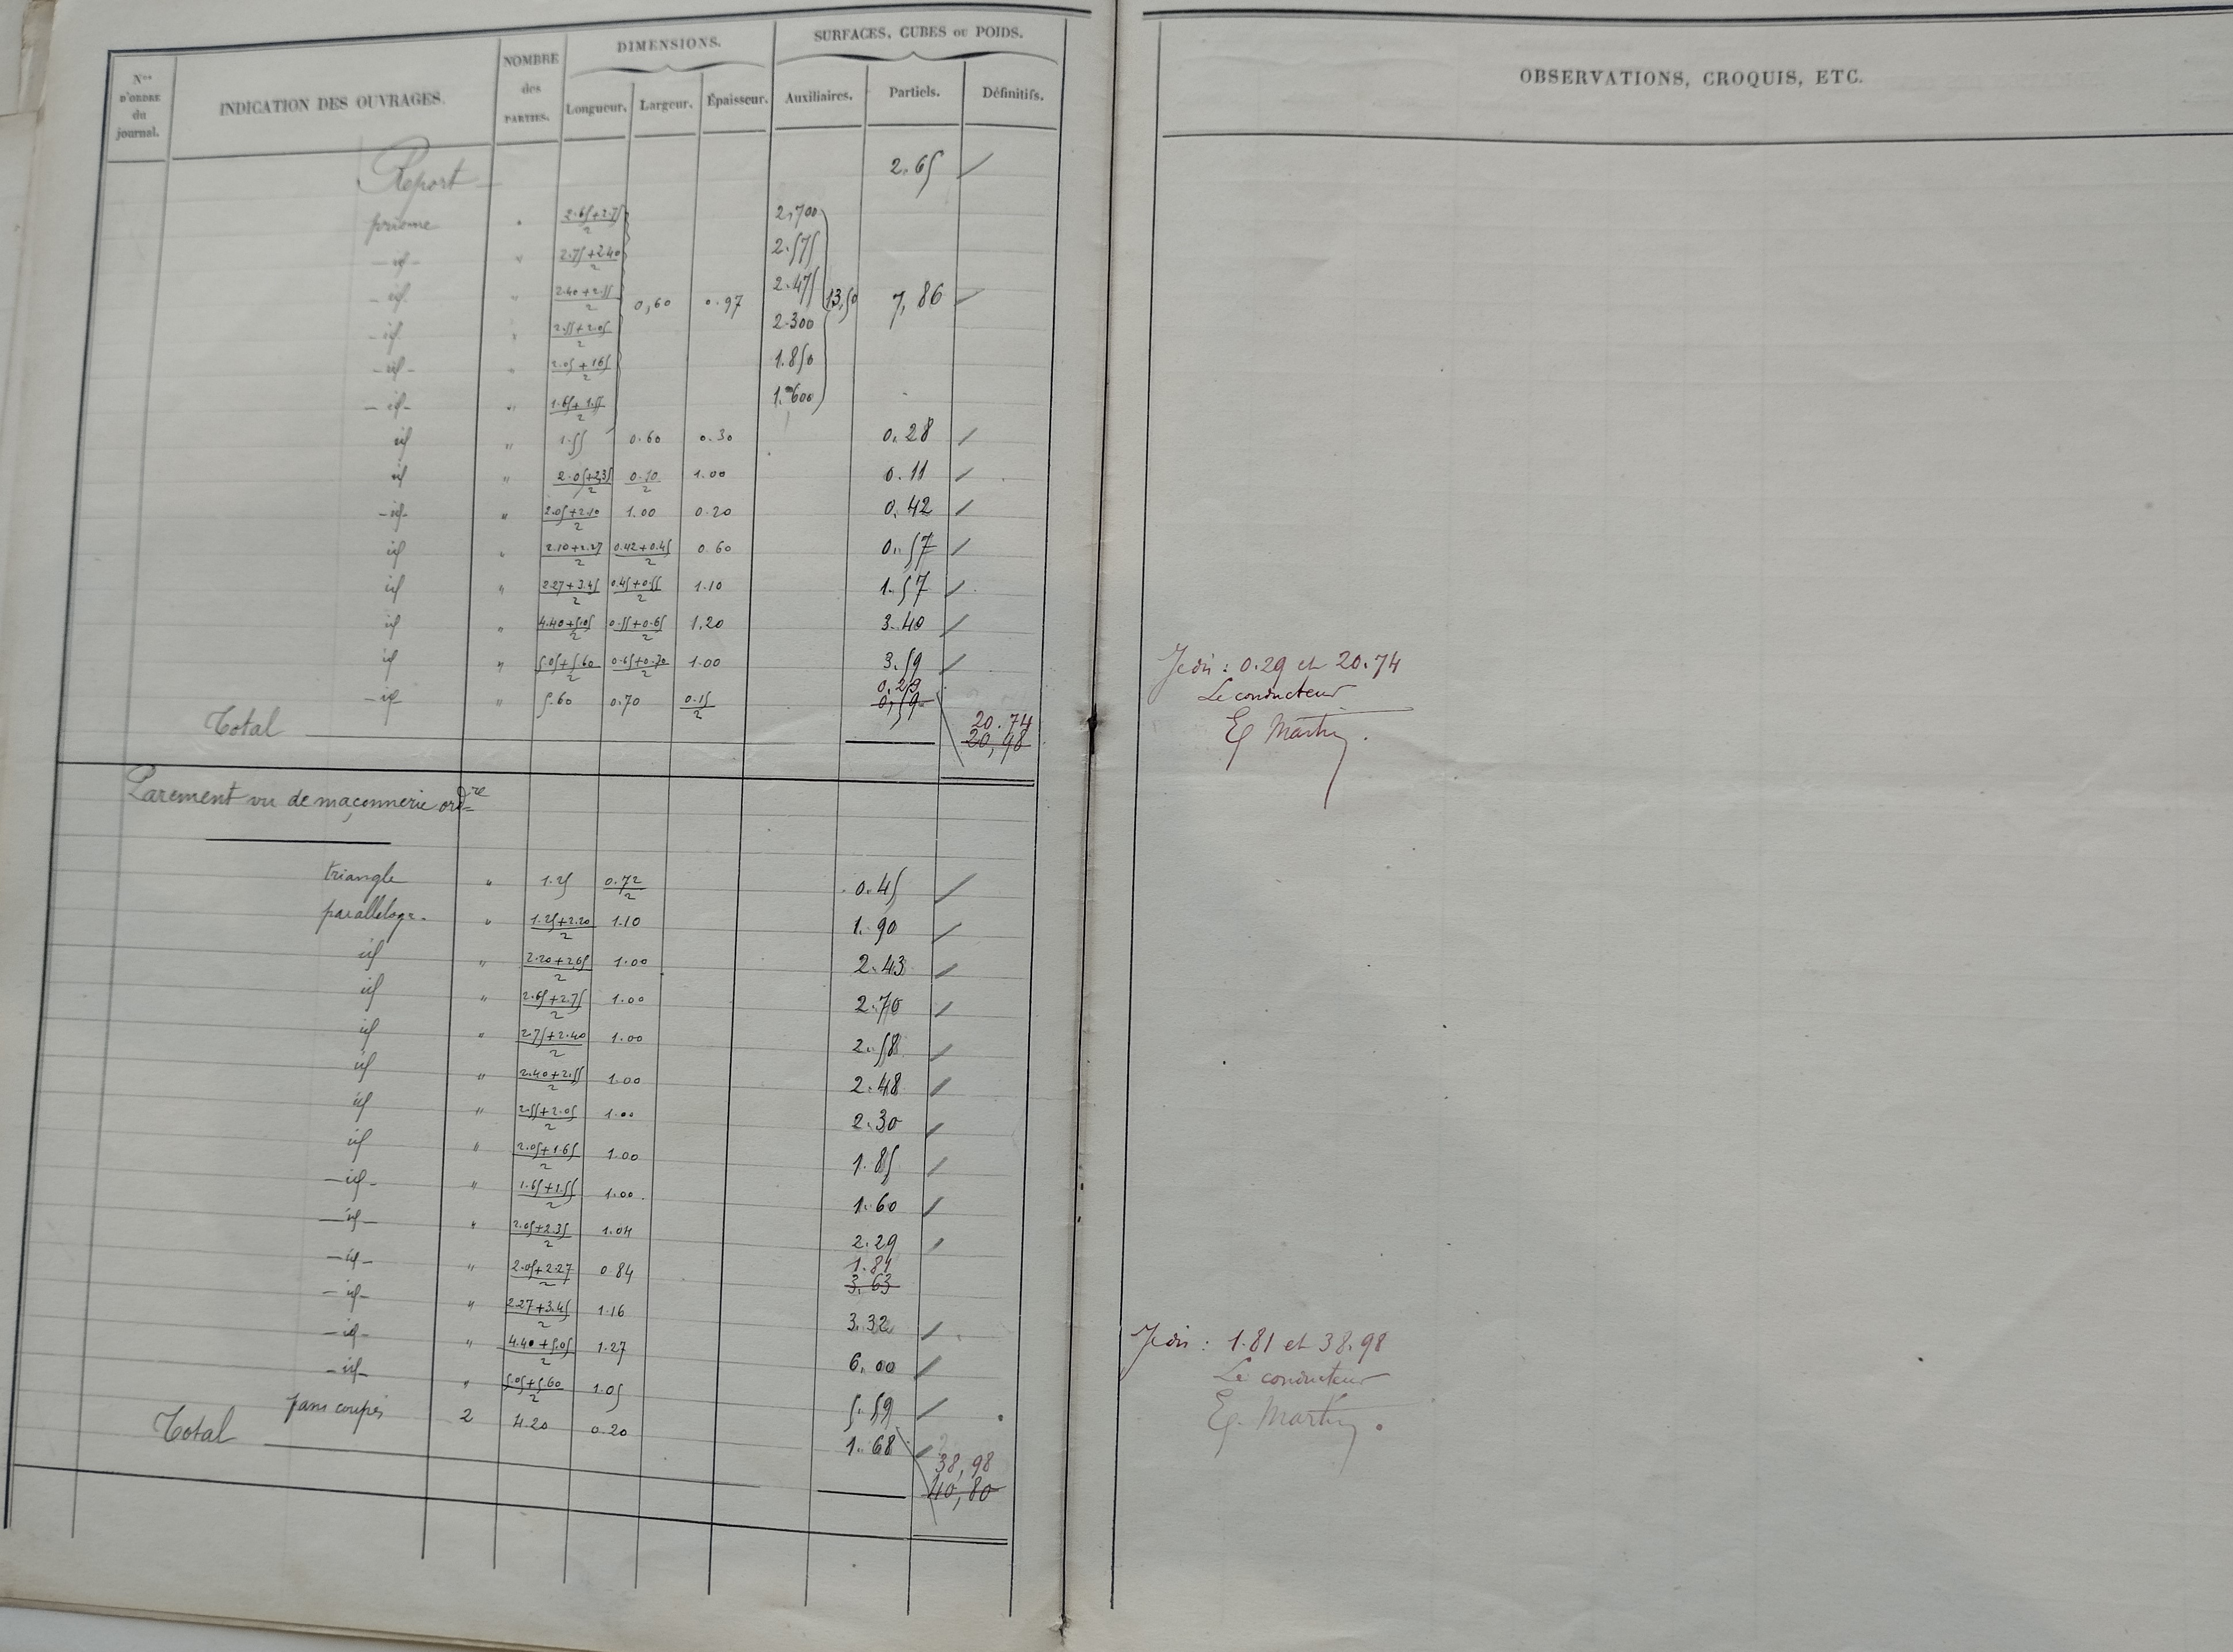 Nos D'ORDRE du journal. INDICATION DES OUVRAGES. NOMBRE des PARTIES. DIMENSIONS. Longueur. Largeur. Épaisseur. SURFACES, CUBES OU POIDS. Auxiliaires. Partiels. Définitifs.
OBSERVATIONS, CROQUIS, ETC.
Report 2.65
prisme " (2.65+2.75)/2 2,700
- id - " (2.75+2.40)/2 2.575
- id. " (2.40+2.55)/2 0,60 0.97 2.475 13,50 7,86
- id. " (2.55+2.05)/2 2.300
- id - " (2.05+1.65)/2 1.850
- id - " (1.65+1.55)/2 1.600
id " 1.55 0.60 0.30 0.28
id " (2.05+2,35)/2 0.10/2 1.00 0.11
- id - " (2.05+2.10)/2 1.00 0.20 0.42
id " (2.10+2.27)/2 (0.42+0.45)/2 0.60 0.57
id " (2.27+3.45)/2 (0.45+0.55)/2 1.10 1.57
id " (4.40+5.05)/2 (0.55+0.65)/2 1.20 3.40
id " (5.05+5.60)/2 (0.65+0.70)/2 1.00 3.59
0.29
- id - " 5.60 0.70 0.15/2 0,59
20.74
Total 20,98
Je dis : 0.29 et 20.74
Le conducteur
Eg Martin.
Parement vu de maçonnerie ordre
triangle " 1.25 0.72/2 0.45
parallelogr. " (1.25+2.20)/2 1.10 1.90
id " (2.20+2,65)/2 1.00 2.43
id " (2.65+2.75)/2 1.00 2.70
id " (2.75+2.40)/2 1.00 2.58
id " (2.40+2.55)/2 1.00 2.48
id " (2.55+2.05)/2 1.00 2.30
id " (2.05+1.65)/2 1.00 1.85
- id - " (1.65+1.55)/2 1.00 1.60
- id - " (2.05+2.35)/2 1.04 2.29
1.81
- id - " (2.05+2.27)/2 0.84 3.63
- id - " (2.27+3.45)/2 1.16 3.32
- id - " (4.40+5.05)/2 1.27 6.00
- id - " (5.05+5.60)/2 1.05 5.59
pans coupés 2 4.20 0.20 1.68
38,98
Total 40,80
Je dis : 1.81 et 38.98
Le conducteur
Eg. Martin.